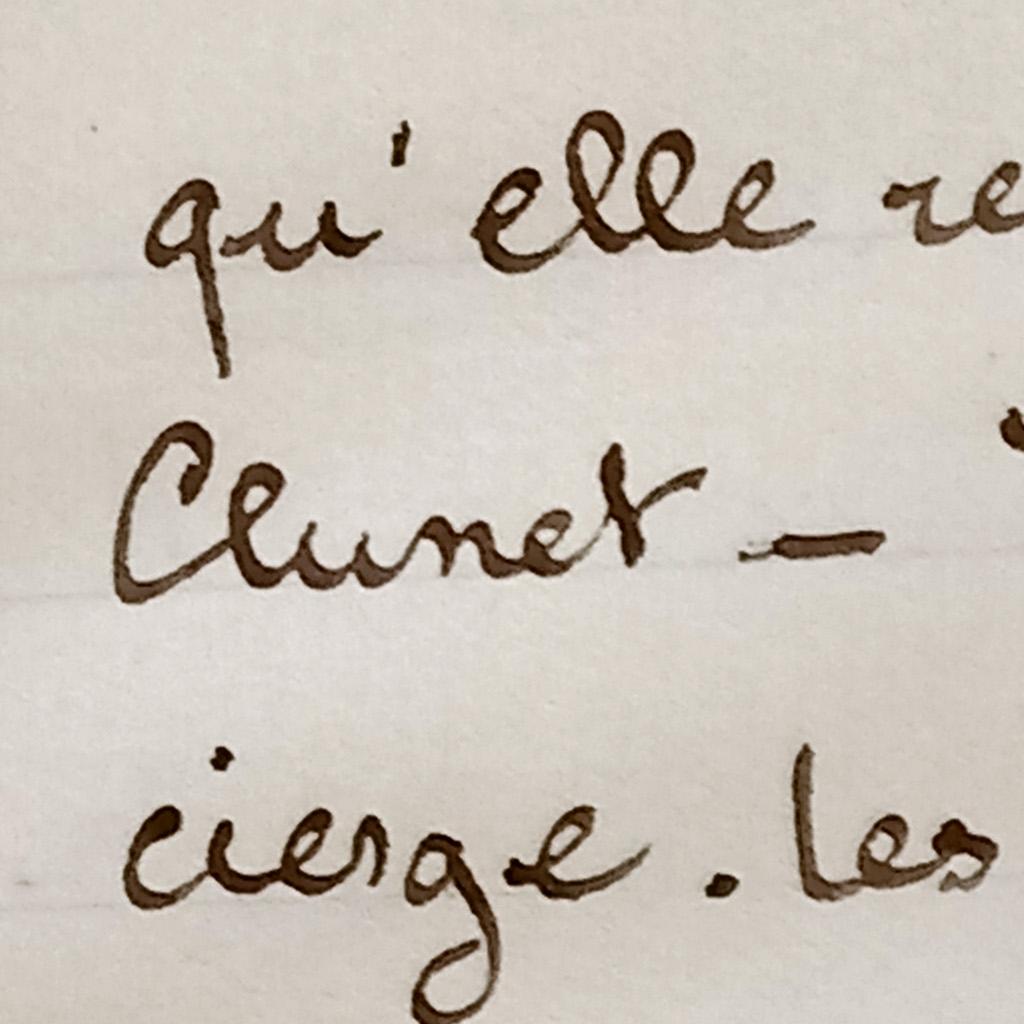 qu'elle re
Clunet —
cierge. les